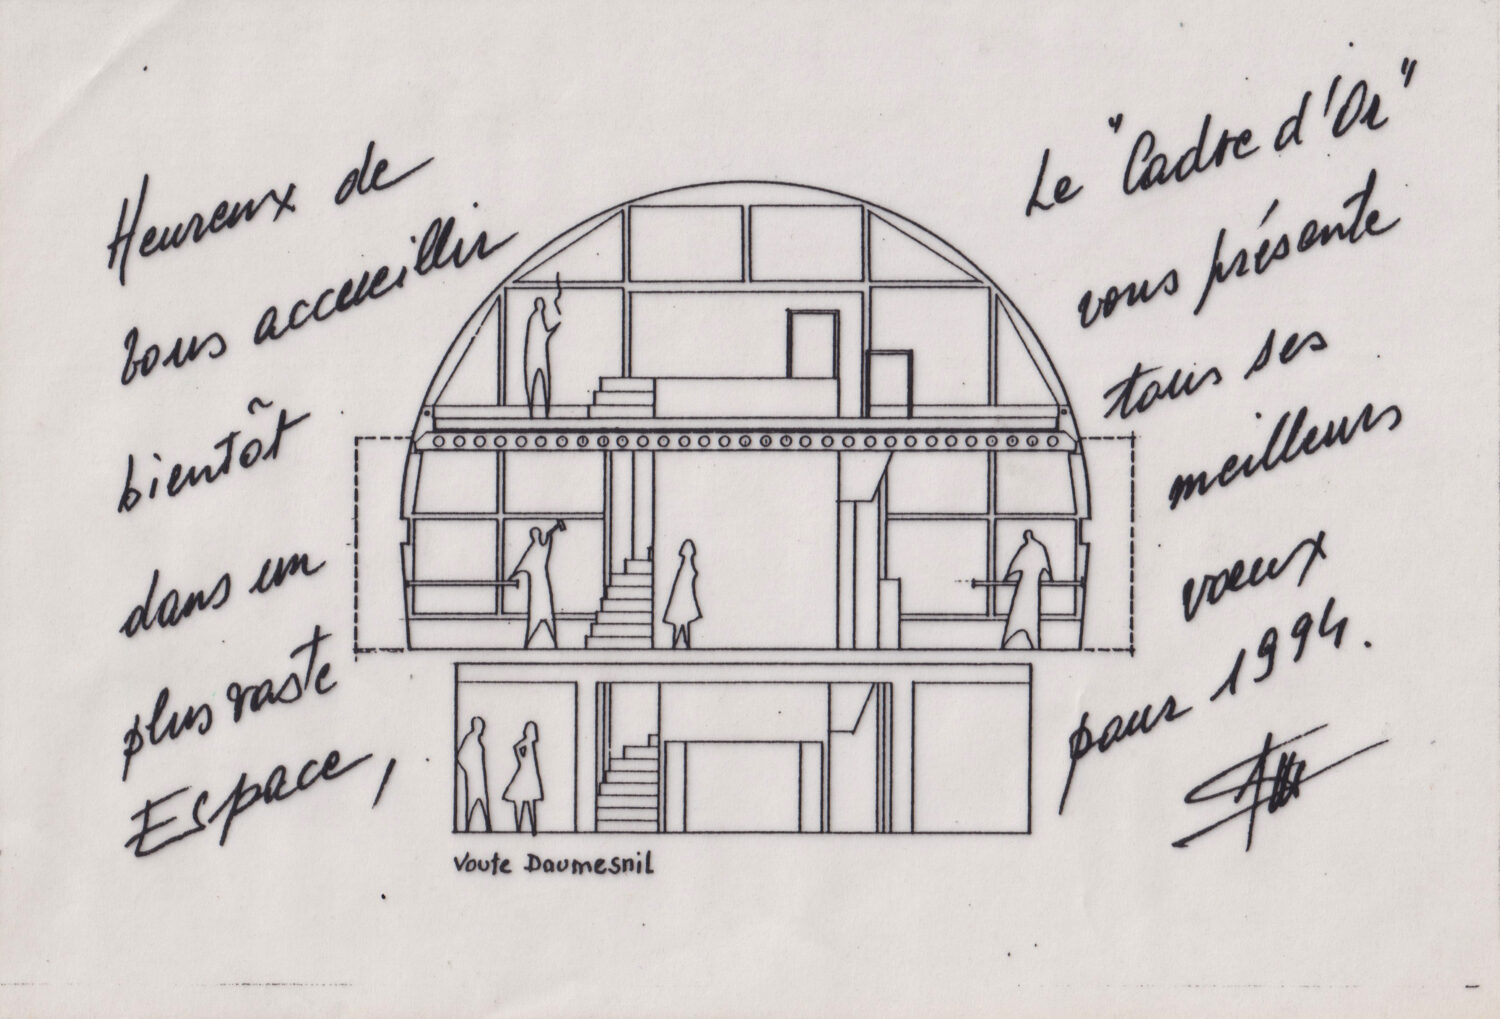 Heureux de
vous accueillir
bientôt
dans un
plus vaste
Espace,
Le "Cadre d'Or"
vous présente
tous ses
meilleurs
vœux
pour 1994.
Voute Daumesnil